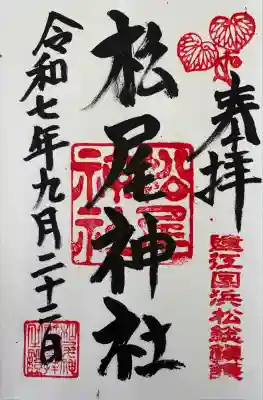 奉拝
遠江国浜松総鎮護
松尾神社
松尾神社
令和七年九月二十二日